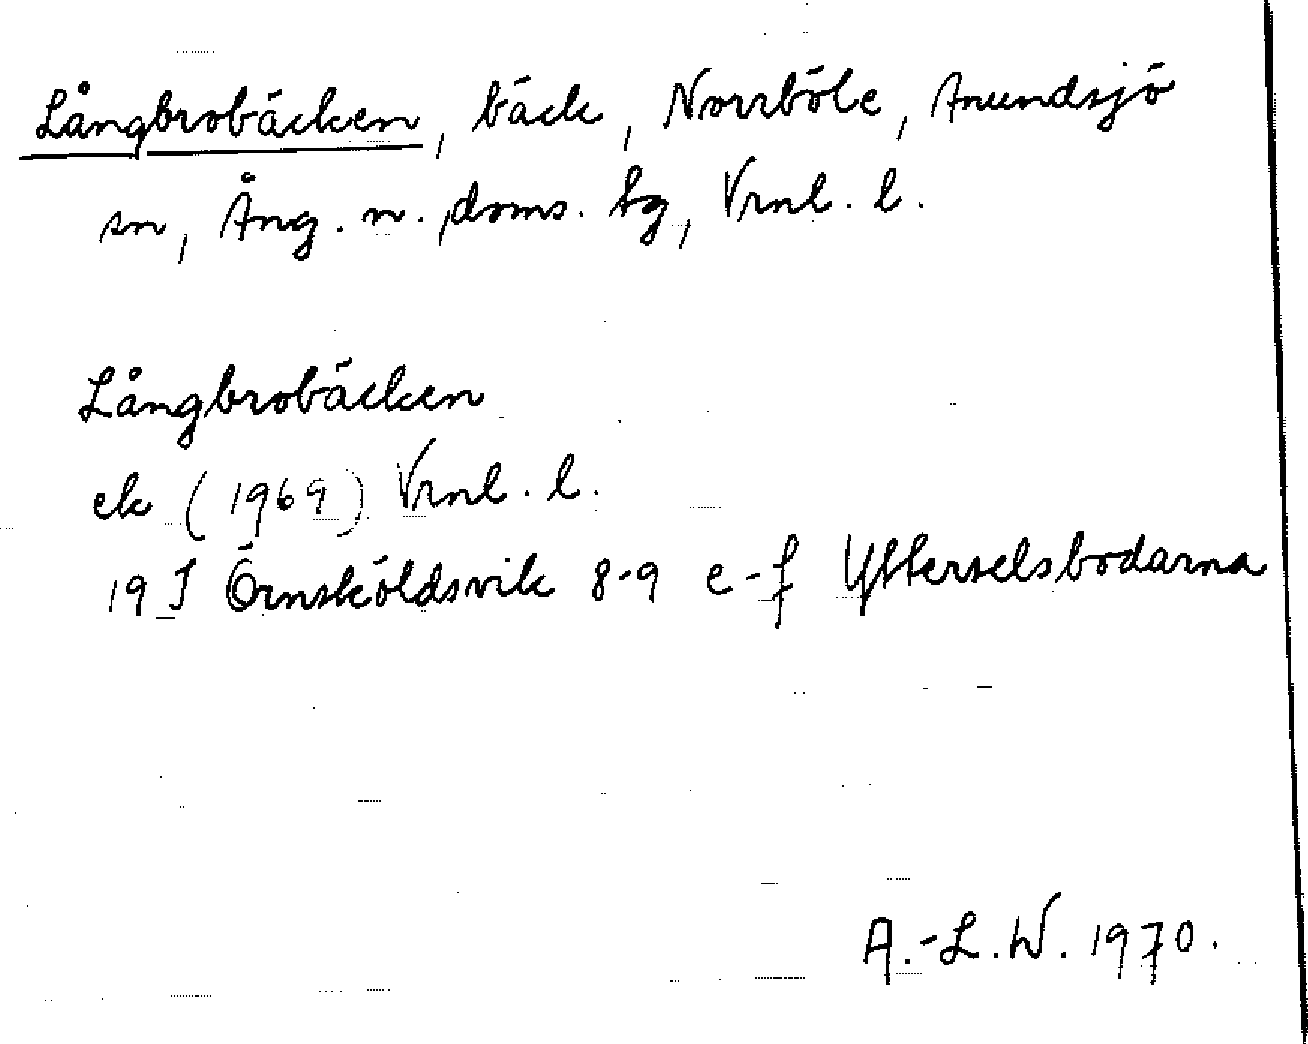 Långbrobäcken, bäck, Norrböle, Anundsjö
sn, Ång. n. doms. sg, Vrnl. l.
Långbrobäcken
ek (1969) Vrnl. l.
19 J Örnsköldsvik 8-9 e-f Ytterselsbodarna
A.-L.W. 1970.